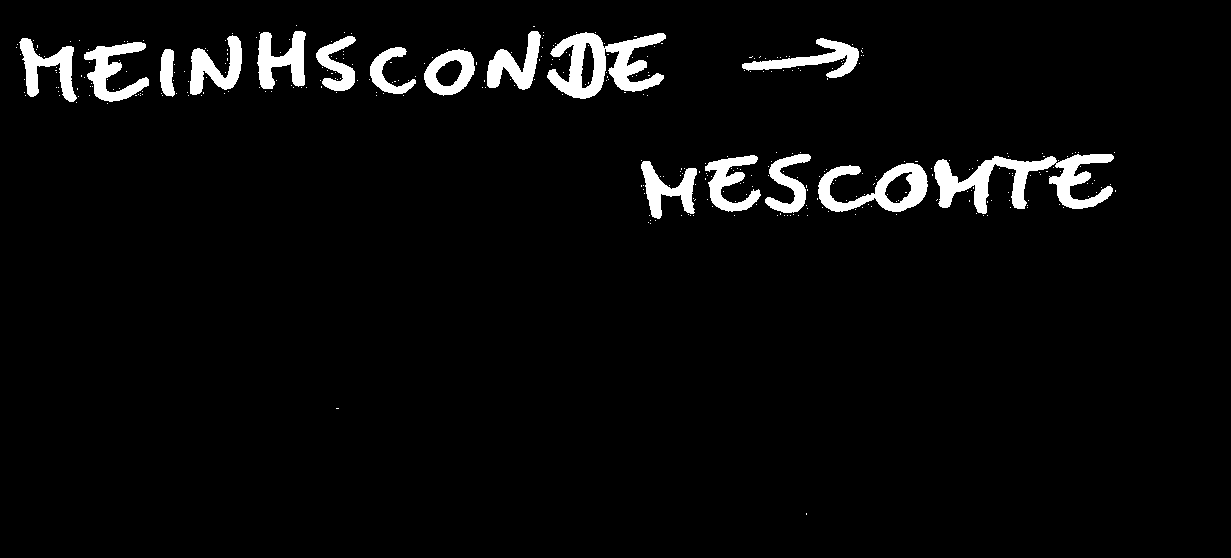 MEINMSCONDE →
MESCOMTE